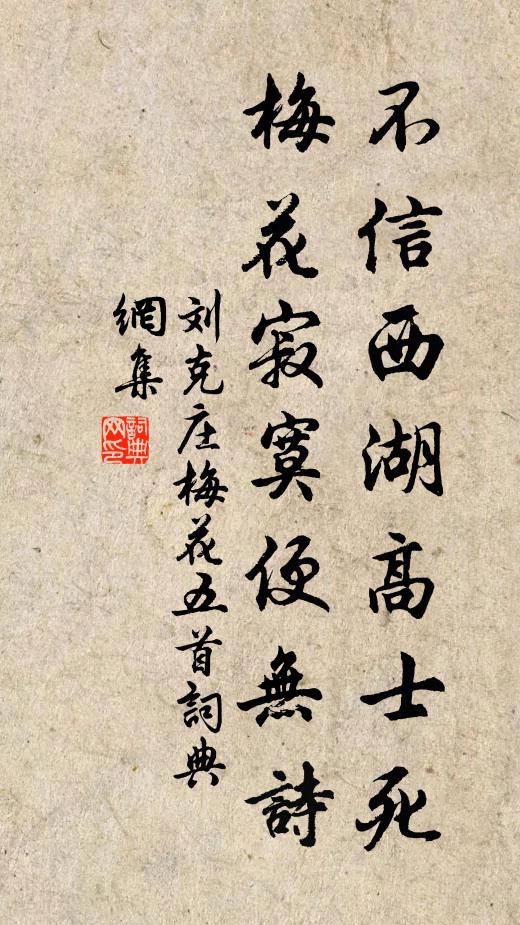 不信西湖高士死
梅花寂寞便無詩
刘克庄梅花五首詞典
網集
詞典
网印